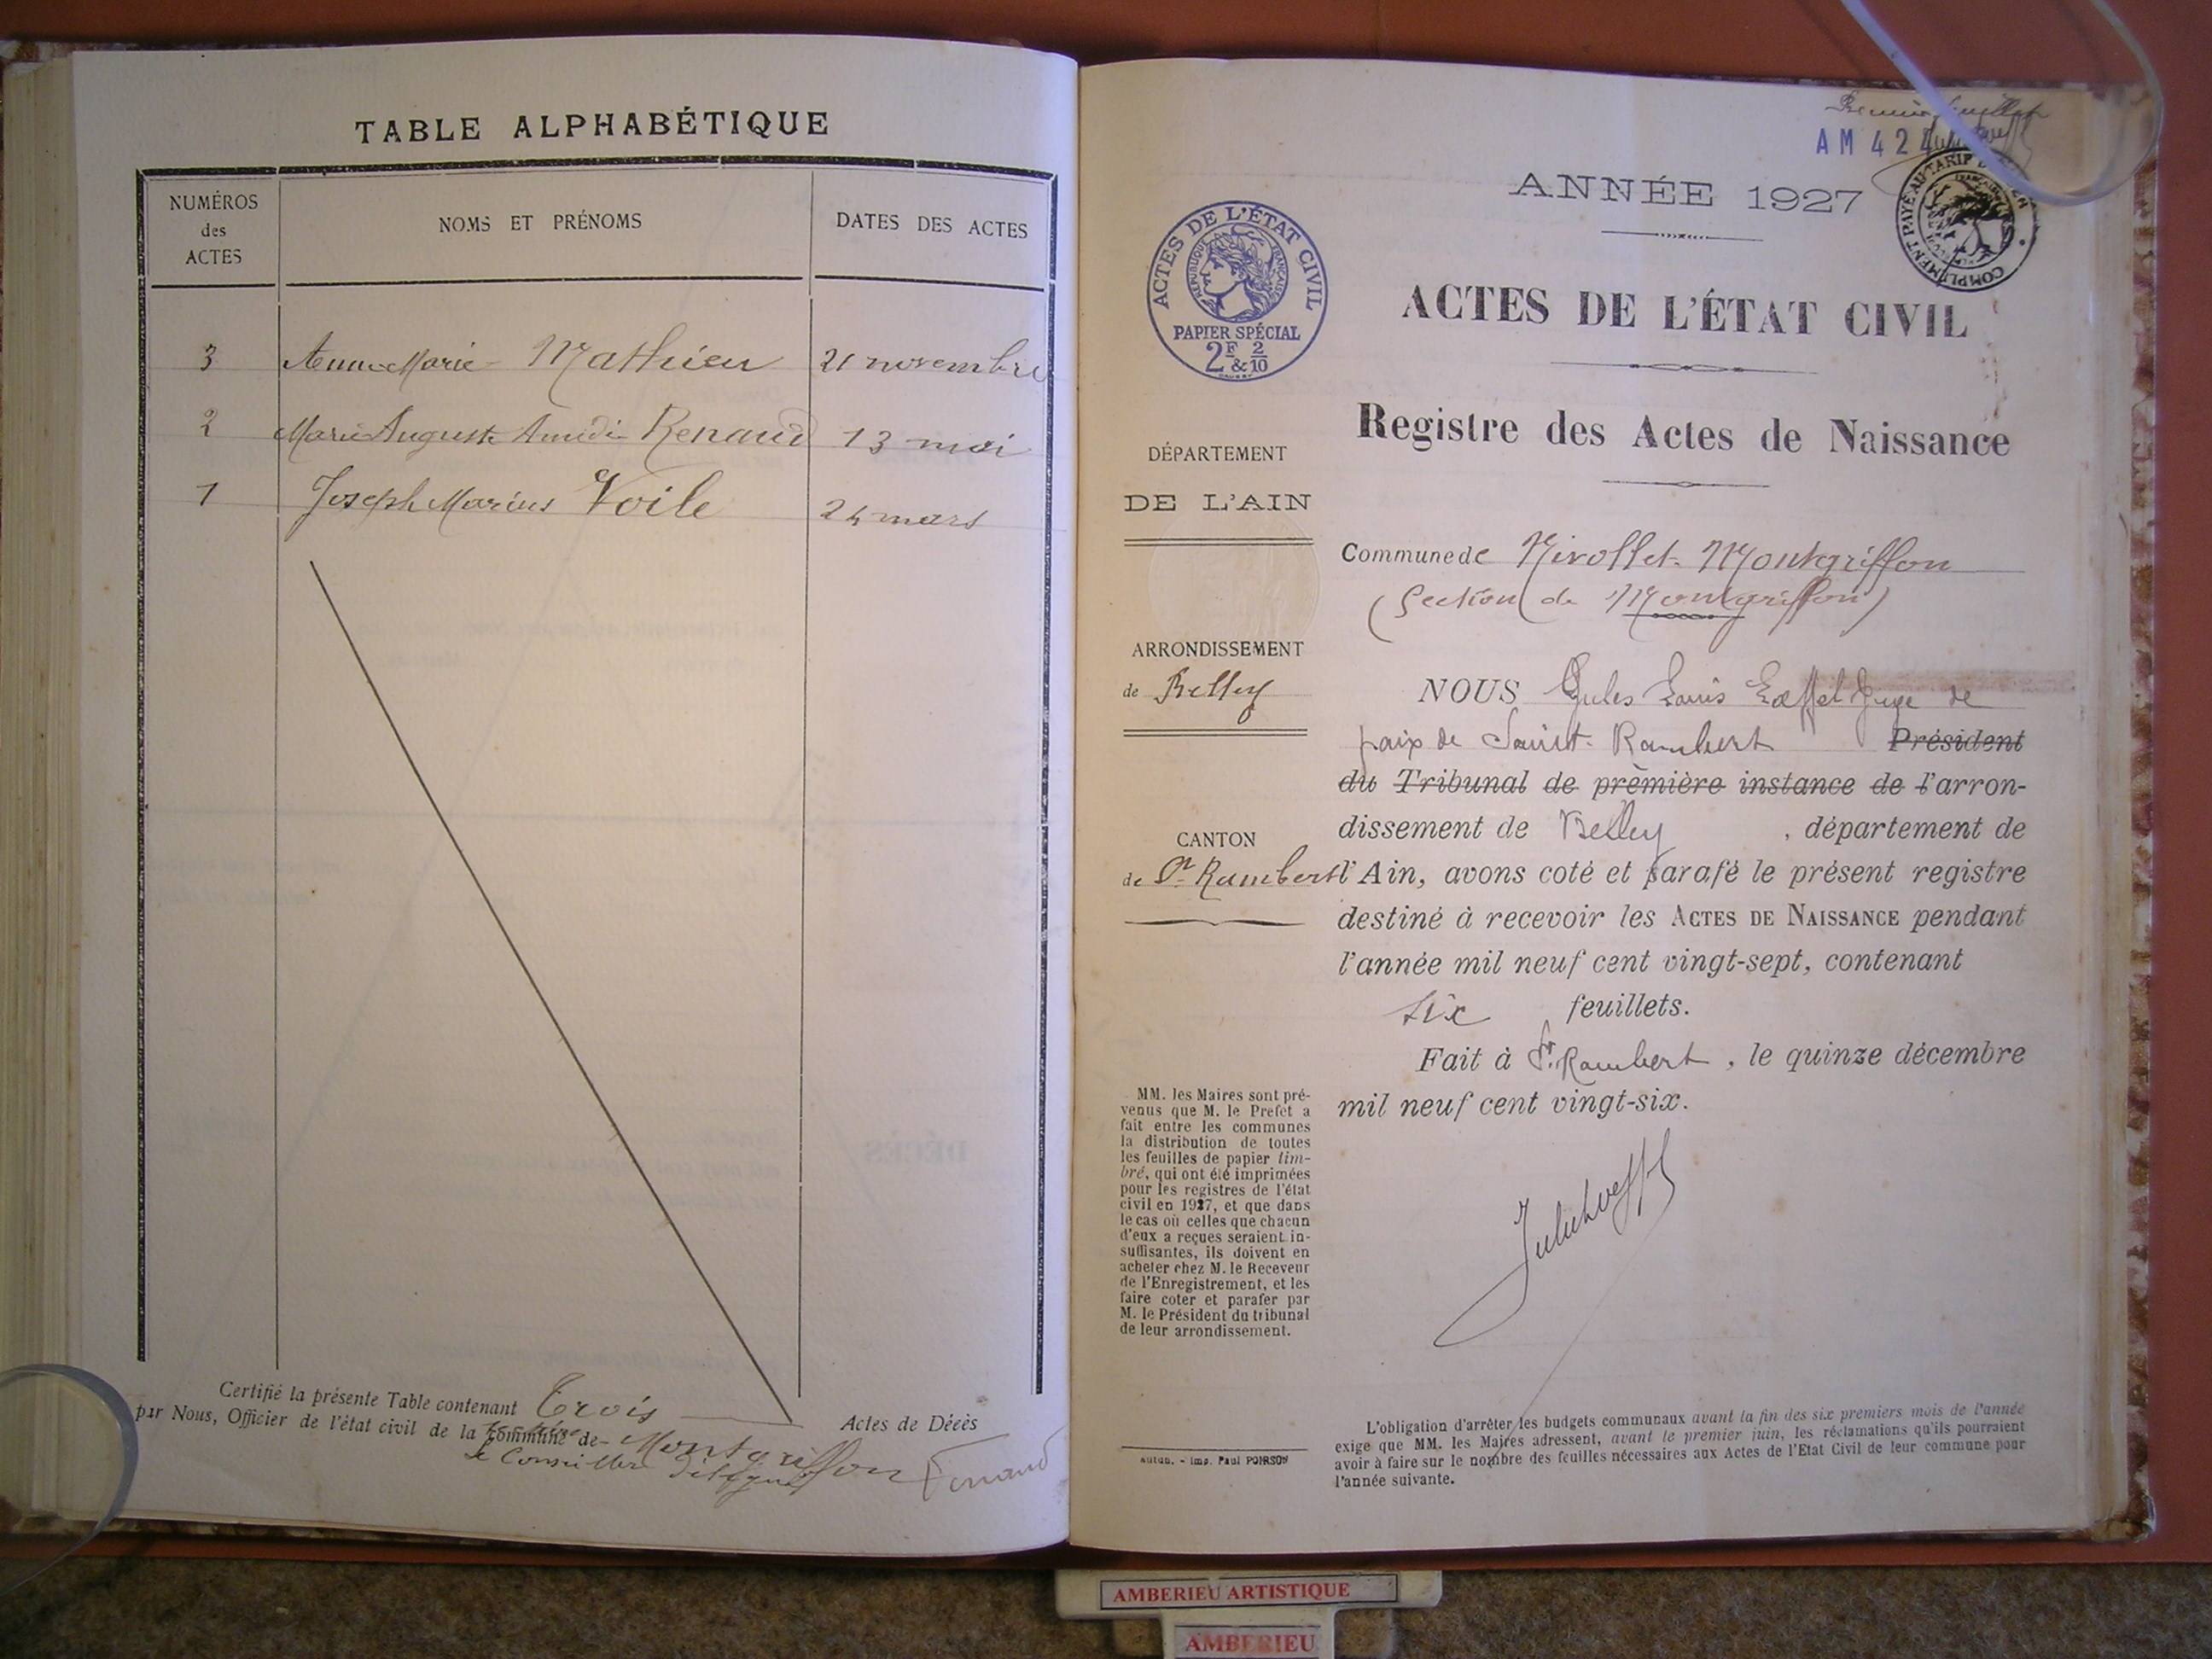 TABLE ALPHABÉTIQUE
NUMÉROS
des
ACTES
NOMS ET PRÉNOMS
DATES DES ACTES
3 Anne-Marie Mathieu 21 novembre
2 Marie Auguste Amédé Renaud 13 mai
1 Joseph Marius Voile 24 mars
Certifié la présente Table contenant Trois Actes de Décès
par Nous, Officier de l'état civil de la commune de Montgriffon
Le Conseiller Délégué
Renaud
Premier feuillet
AM 424
COMPLÉMENT PAYÉ AU TARIF
ANNÉE 1927
ACTES DE L'ÉTAT CIVIL
RÉPUBLIQUE FRANÇAISE
PAPIER SPÉCIAL
2F & 2/10
ACTES DE L'ÉTAT CIVIL
Registre des Actes de Naissance
DÉPARTEMENT
DE L'AIN
Commune de Nivollet-Montgriffon
(Section de Montgriffon)
ARRONDISSEMENT
de Belley
CANTON
de St Rambert
NOUS Jules Louis Lœffel Juge de
paix de Saint-Rambert Président
du Tribunal de première instance de l'arron-
dissement de Belley, département de
l'Ain, avons coté et parafé le présent registre
destiné à recevoir les ACTES DE NAISSANCE pendant
l'année mil neuf cent vingt-sept, contenant
six feuillets.
Fait à St. Rambert, le quinze décembre
mil neuf cent vingt-six.
MM. les Maires sont pré-
venus que M. le Prefet a
fait entre les communes
la distribution de toutes
les feuilles de papier tim-
bré, qui ont été imprimées
pour les registres de l'état
civil en 1927, et que dans
le cas où celles que chacun
d'eux a reçues seraient in-
suffisantes, ils doivent en
acheter chez M. le Receveur
de l'Enregistrement, et les
faire coter et parafer par
M. le Président du tribunal
de leur arrondissement.
Autun. - Imp. Paul POIRSON
L'obligation d'arrêter les budgets communaux avant la fin des six premiers mois de l'année
exige que MM. les Maires adressent, avant le premier juin, les réclamations qu'ils pourraient
avoir à faire sur le nombre des feuilles nécessaires aux Actes de l'Etat Civil de leur commune pour
l'année suivante.
AMBERIEU ARTISTIQUE
AMBERIEU